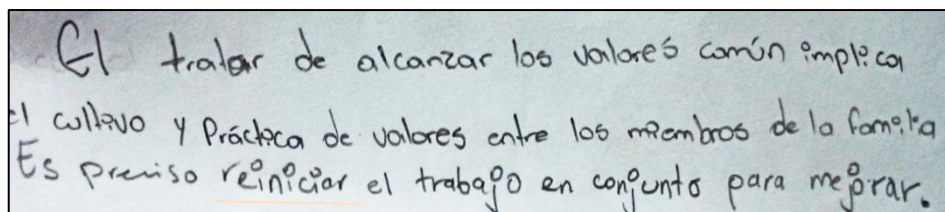 El tratar de alcanzar los valores común implica
el cultivo y Práctica de valores entre los miembros de la familia
Es preciso reiniciar el trabajo en conjunto para mejorar.